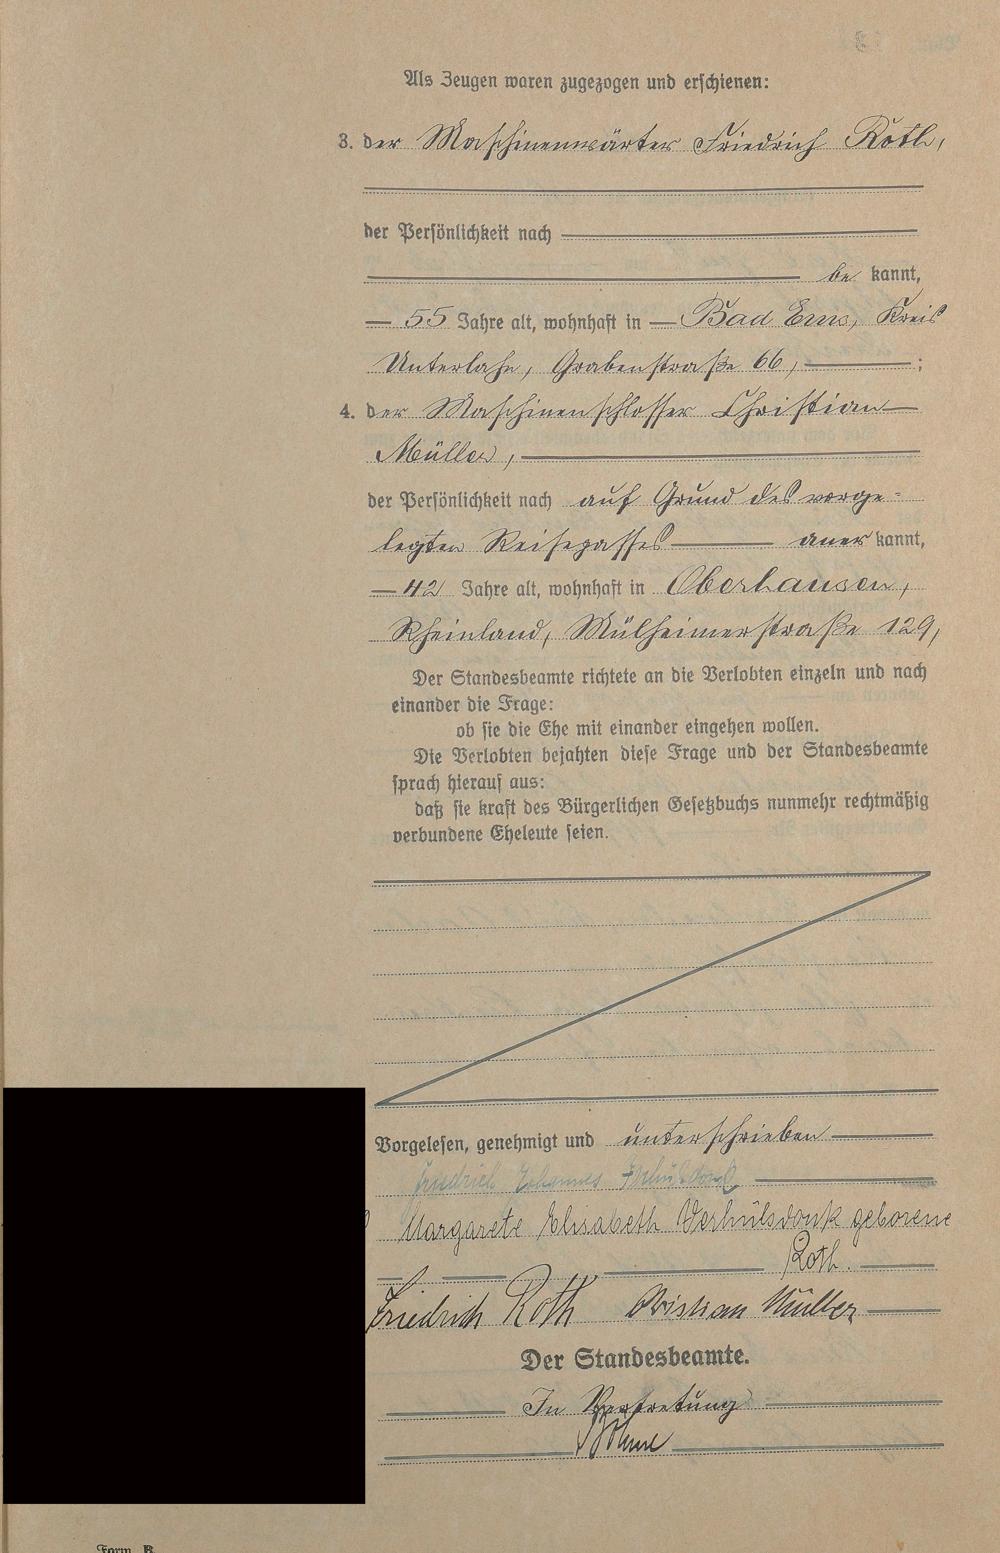 Als Zeugen waren zugezogen und erschienen:
3. der Maschinenwärter Friedrich Roth,
der Persönlichkeit nach
be kannt,
55 Jahre alt, wohnhaft in Bad Ems, Kreis
Unterlahn, Grabenstraße 66, ;
4. der Maschinenschlosser Christian
Müller,
der Persönlichkeit nach auf Grund des vorge-
legten Reisepasses aner kannt,
42 Jahre alt, wohnhaft in Oberhausen,
Rheinland, Mülheimerstraße 129,
Der Standesbeamte richtete an die Verlobten einzeln und nach
einander die Frage:
ob sie die Ehe mit einander eingehen wollen.
Die Verlobten bejahten diese Frage und der Standesbeamte
sprach hierauf aus:
daß sie kraft des Bürgerlichen Gesetzbuchs nunmehr rechtmäßig
verbundene Eheleute seien.
Vorgelesen, genehmigt und unterschrieben
Friedrich Johannes Verhülsdonk
Margarete Elisabeth Verhülsdonk geborene
Roth.
Friedrich Roth Christian Müller
Der Standesbeamte.
In Vertretung
Form. B.